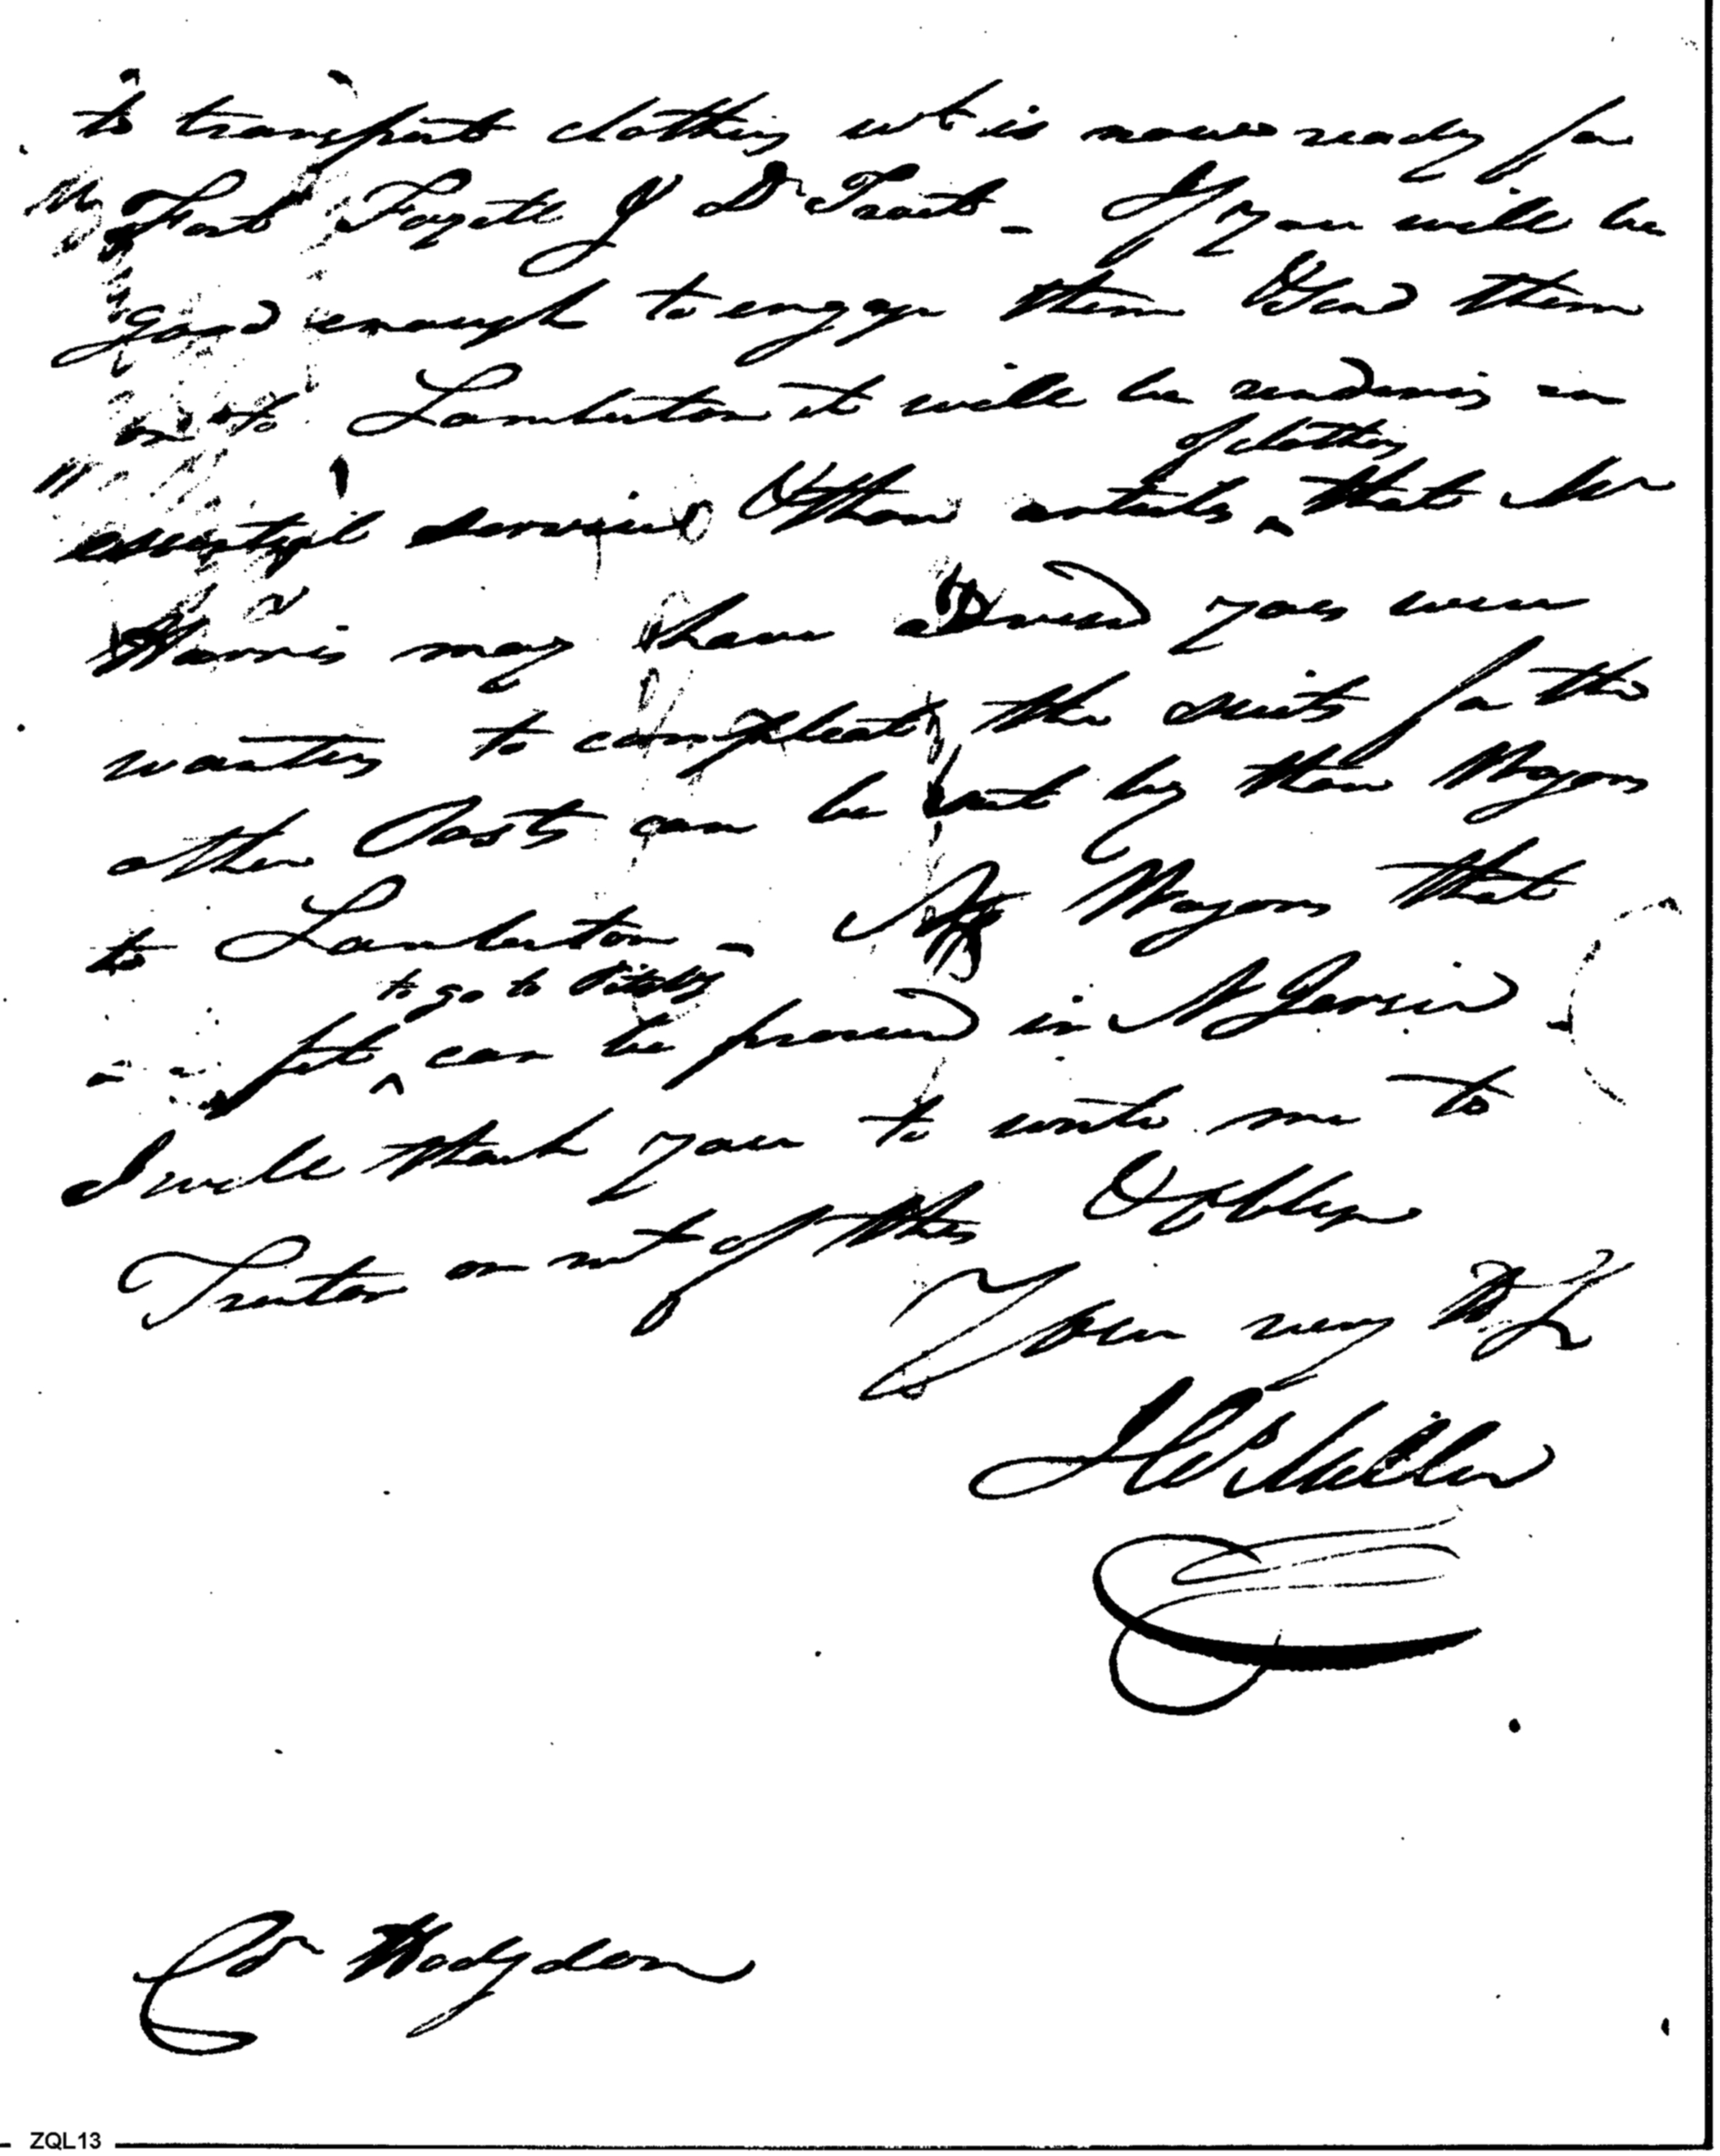 to transport clothing wh is now ready for
Fort Fayette & Detroit - If you will be
good enough to engage them & send them
on to Lamberton it will be rendering an
of clothing
essential service & those articles ^ that Mr
Harris may have advised you were
wanting to compleat the suits for the
other Posts can be sent by these Wagons
to Lamberton - If Wagons that
to go to Pittsbg
^ can be procured in N Jersie
I will thank you to write me to
Trenton on rect of this & oblige
Your very H S
J Miller
Col Hodgdon
ZQL13